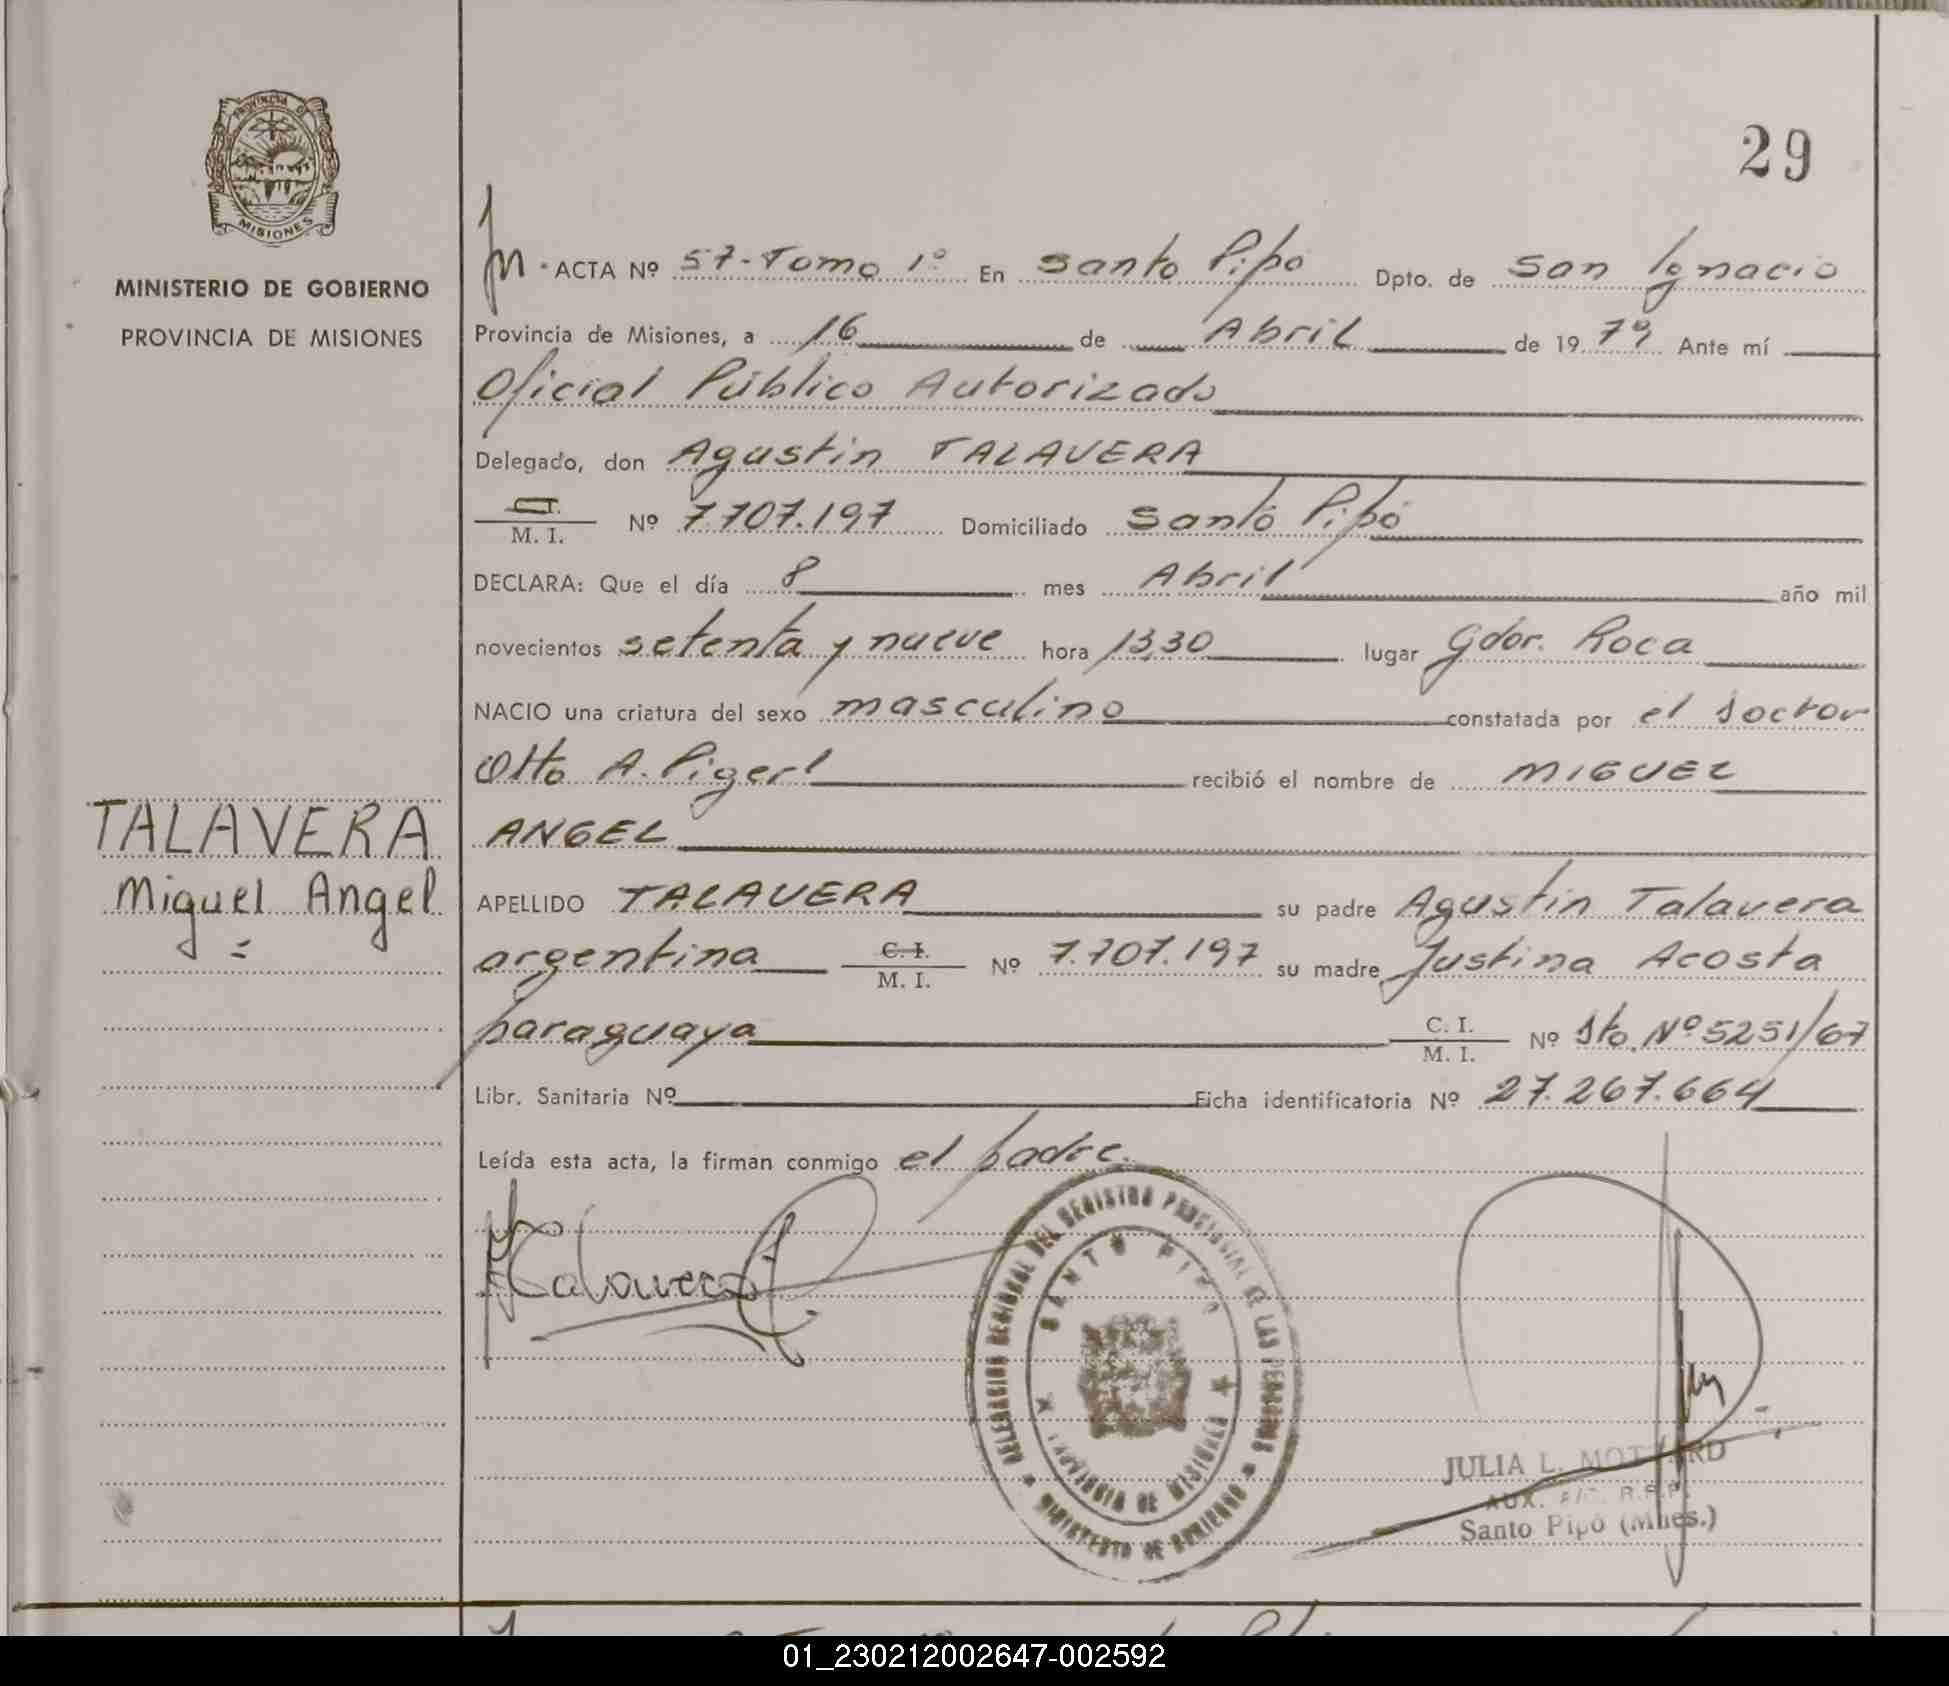 29
PROVINCIA DE
MISIONES
MINISTERIO DE GOBIERNO
PROVINCIA DE MISIONES
TALAVERA
Miguel Angel
ACTA Nº 57-Tomo 1º En Santo Pipó Dpto. de San Ignacio
Provincia de Misiones, a 16 de Abril de 1979 Ante mí
Oficial Público Autorizado
Delegado, don Agustin TALAVERA
C.I. M. I. Nº 7.707.197 Domiciliado Santo Pipó
DECLARA: Que el día 8 mes Abril año mil
novecientos setenta y nueve hora 13,30 lugar Gdor. Roca
NACIO una criatura del sexo masculino constatada por el doctor
Otto A. Pigerl recibió el nombre de MIGUEL
ANGEL
APELLIDO TALAVERA su padre Agustin Talavera
argentina C. I. M. I. Nº 7.707.197 su madre Justina Acosta
paraguaya C. I. M. I. Nº Nº 5251/67
Libr. Sanitaria Nº Ficha identificatoria Nº 27.267.664
Leída esta acta, la firman conmigo el padre.
Talavera
DELEGACION REGIONAL DEL REGISTRO PROVINCIAL DE LAS PERSONAS
SANTO PIPO
PROVINCIA DE MISIONES
MINISTERIO DE GOBIERNO
JULIA L. MOTTARD
AUX. R.P.P.
Santo Pipó (Mnes.)
01_230212002647-002592